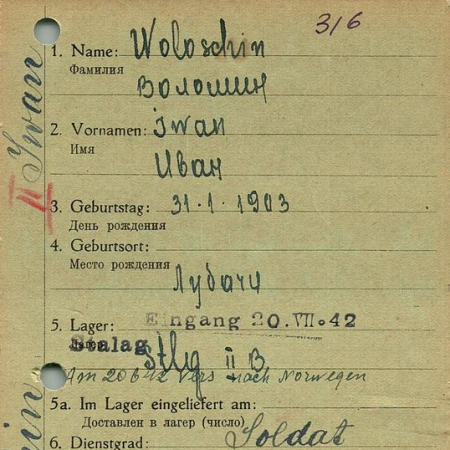 316
1. Name: Woloschin
Фамилия
Волошин
2. Vornamen: Iwan
Имя
Иван
3. Geburtstag: 31.1.1903
День рождения
4. Geburtsort:
Место рождения
Лубачи
5. Lager: Eingang 20.VII.42
Stalag Stlg II B
Am 20 6 42 Vers nach Norwegen
5a. Im Lager eingeliefert am:
Доставлен в лагерь (число)
6. Dienstgrad: Soldat
II Iwan
in